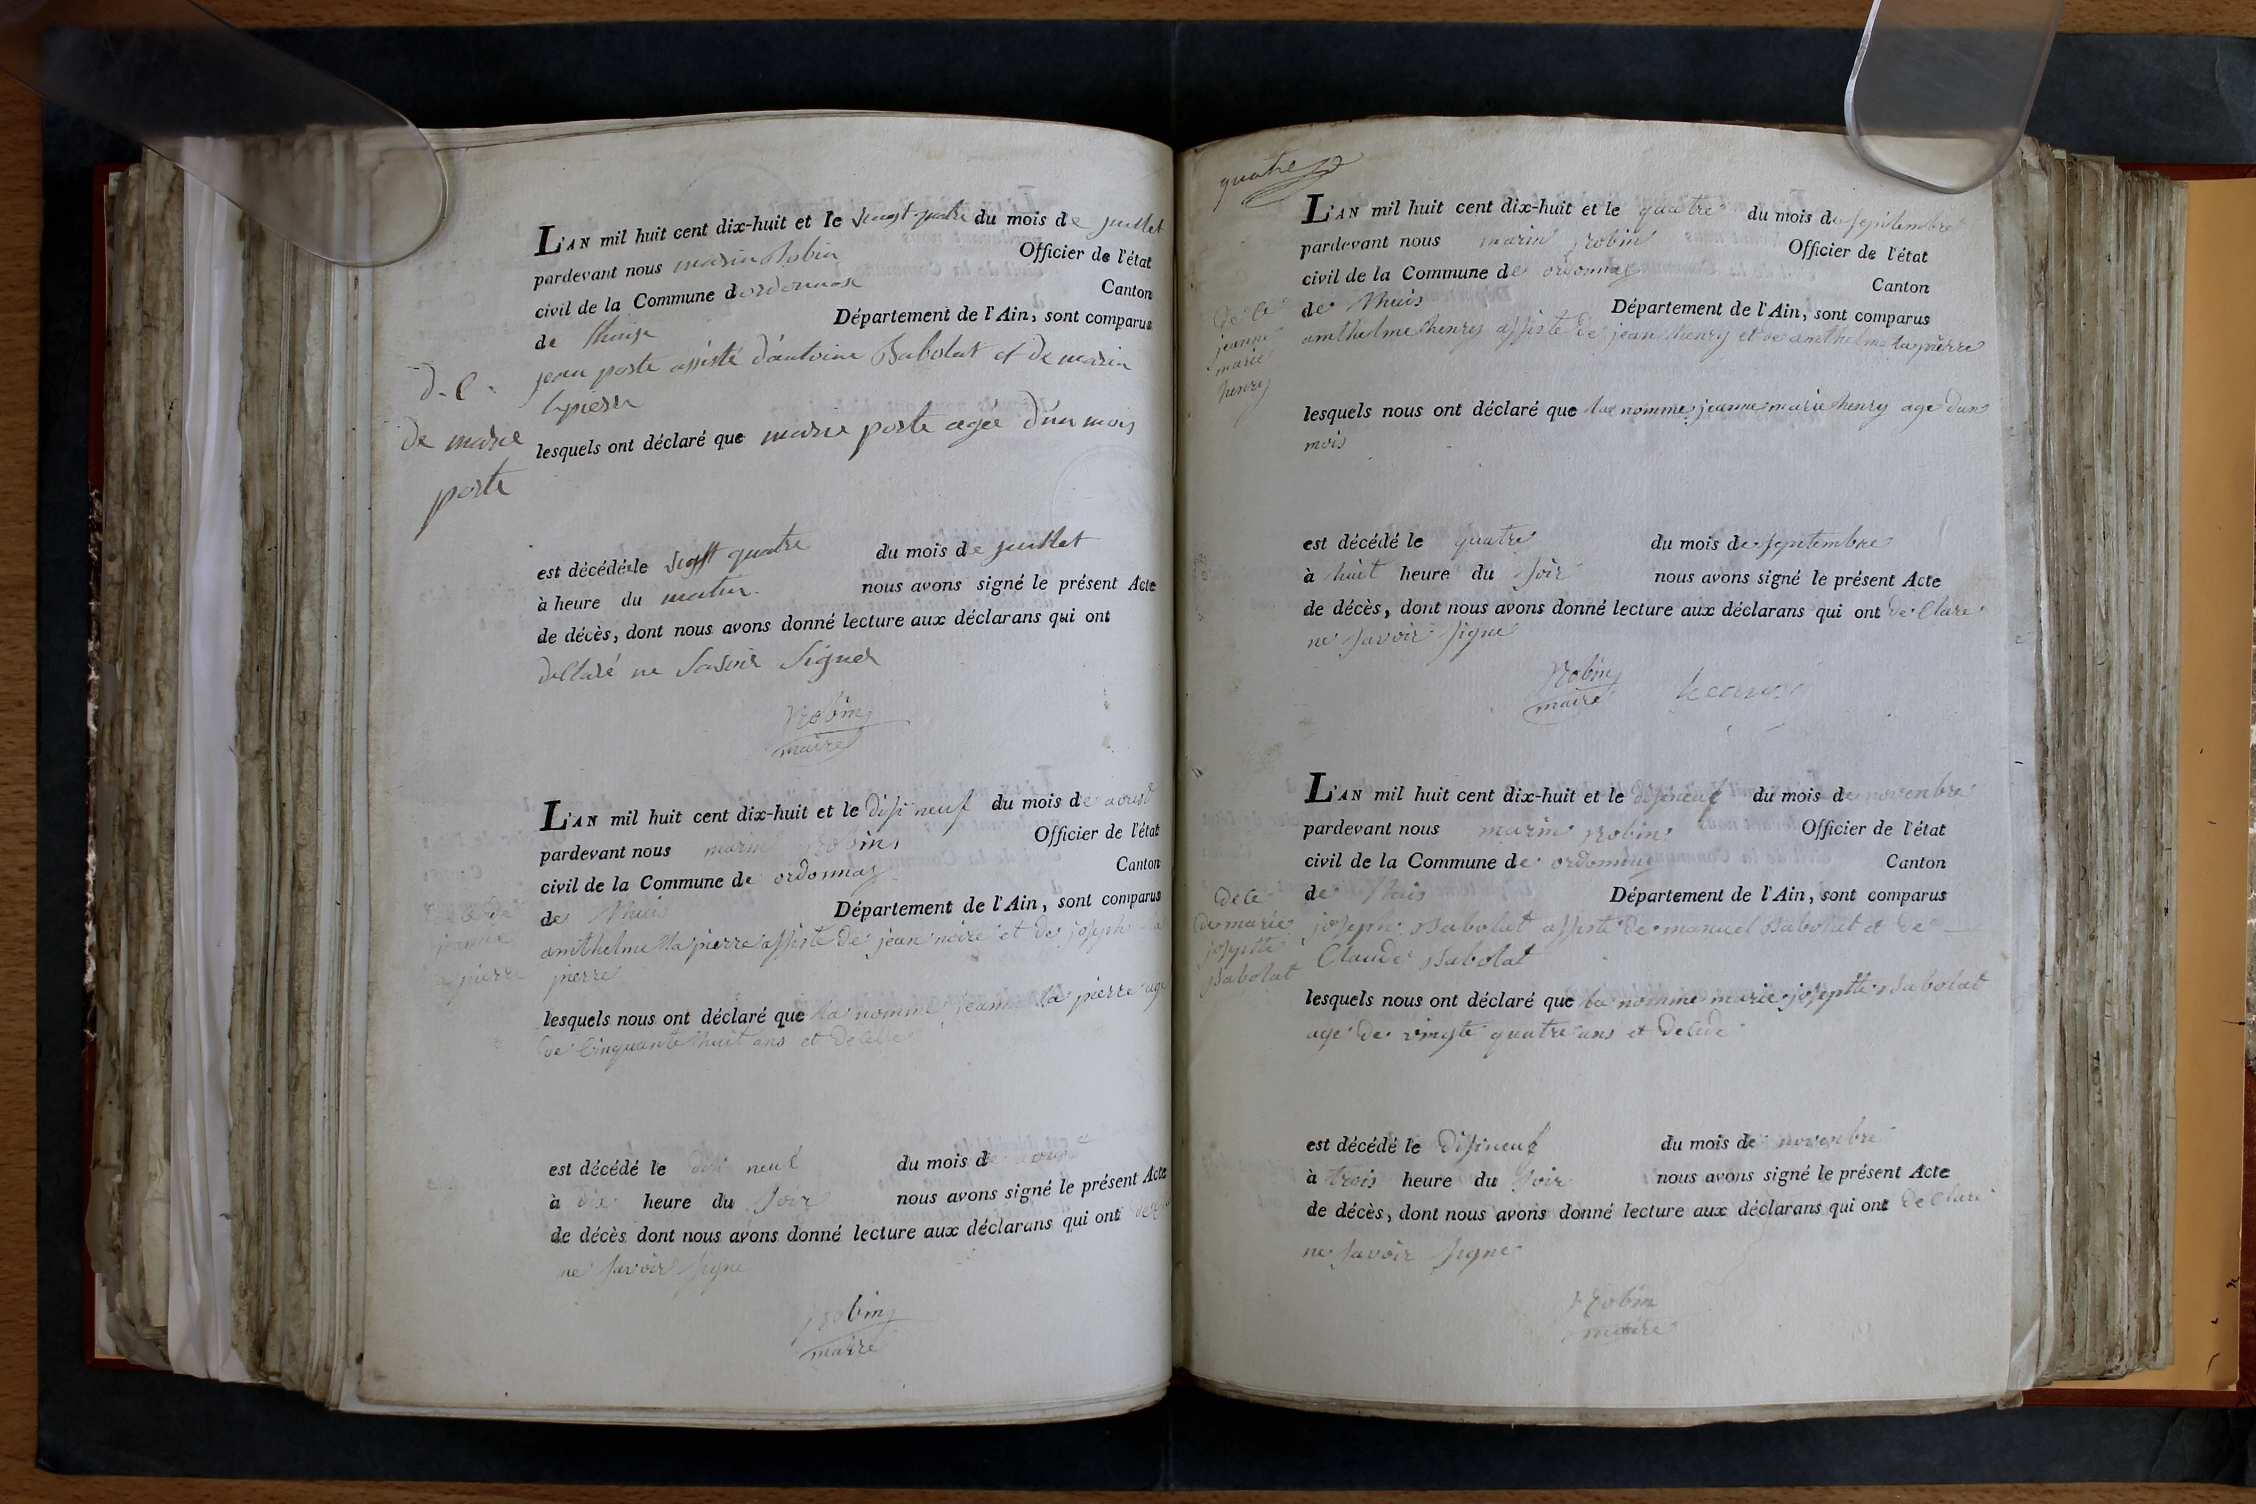 L'AN mil huit cent dix-huit et le vingt quatre du mois de juillet
pardevant nous marin Robin Officier de l'état
civil de la Commune d ordonnax Canton
de thuis Département de l'Ain, sont comparus
jean poste assisté d'antoine Babolat et de marin
lapierre
lesquels ont déclaré que marie poste agée d'un mois
D. C.
de marie
poste
est décédée le vingt quatre du mois de juillet
à heure du matin. nous avons signé le présent Acte
de décès, dont nous avons donné lecture aux déclarans qui ont
declaré ne savoir signer
Robin
maire
L'AN mil huit cent dix-huit et le disi neuf du mois de aoust
pardevant nous marin Robin Officier de l'état
civil de la Commune de ordonnax Canton
de thuis Département de l'Ain, sont comparus
amthelme la pierre assiste de jean noire et de joseph la
pierre
lesquels nous ont déclaré que la nomme jeanne la pierre age
de cinquante huit ans et decede
de
jeanne
la pierre
est décédé le disi neuf du mois d aoust
à dix heure du soir nous avons signé le présent Acte
de décès dont nous avons donné lecture aux déclarans qui ont
ne savoir signe
Robin
maire
quatre
L'AN mil huit cent dix-huit et le quatre du mois de septembre
pardevant nous marin Robin Officier de l'état
civil de la Commune de ordonnax Canton
de thuis Département de l'Ain, sont comparus
amthelme henry assiste de jean henry et de amthelme la pierre
de ce
jeanne
marie
henry
lesquels nous ont déclaré que la nomme jeanne marie henry age dun
mois
est décédé le quatre du mois de septembre
à huit heure du soir nous avons signé le présent Acte
de décès, dont nous avons donné lecture aux déclarans qui ont de clare
ne savoir signe
Robin
maire
L'AN mil huit cent dix-huit et le disineuf du mois de novenbre
pardevant nous marin Robin Officier de l'état
civil de la Commune de ordonnax Canton
de thuis Département de l'Ain, sont comparus
joseph Babolat assiste de manuel Babolat et de
Claude Babolat
de ce
de marie
josephtte
Babolat
lesquels nous ont déclaré que la nomme marie josephtte Babolat
age de vingte quatre ans et decede
est décédé le disineuf du mois de novenbre
à trois heure du soir nous avons signé le présent Acte
de décès, dont nous avons donné lecture aux déclarans qui ont de clare
ne savoir signe
Robin
maire